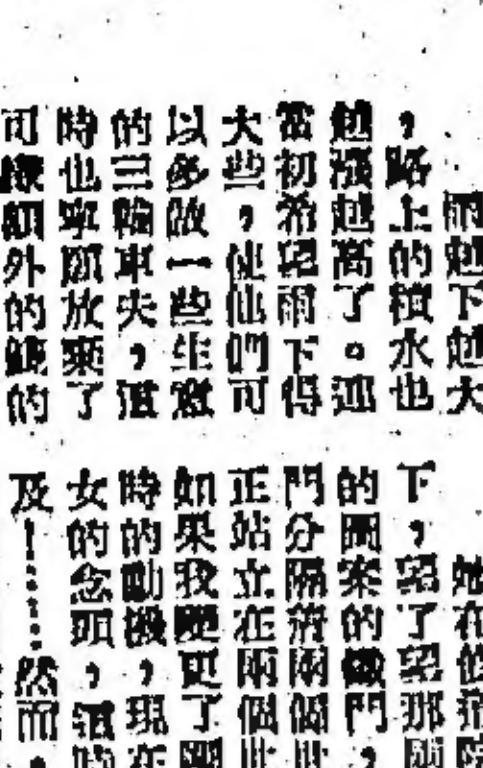 雨越下越大
，路上的積水也
越漲越高了。連
當初希望雨下得
大些，使他們可
以多做一些生意
的三輪車夫，這
時也寧願放棄了
可賺額外的錢的
她在
下，望了望那
的圖案的鐵門，
門分隔着兩個世
正站立在兩個世
如果我變更了
時的動機，現在
女的念頭，這時
及！……然而，